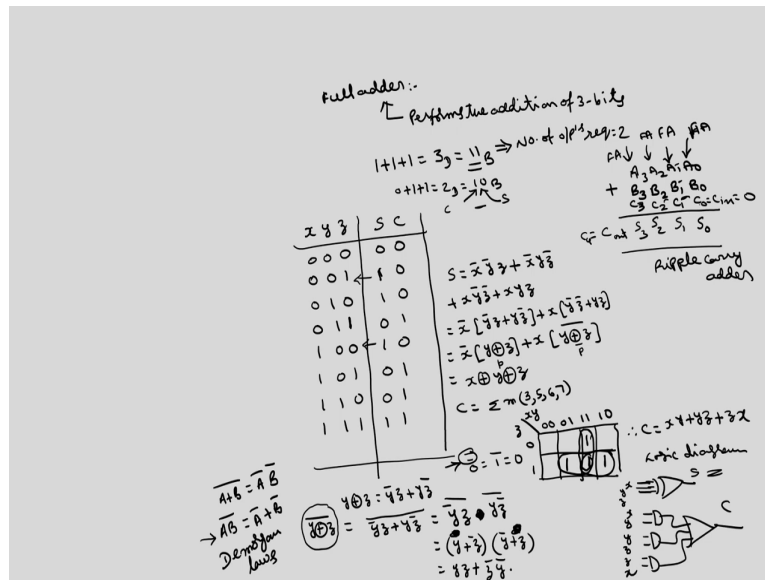 Full adder:-
Performs the addition of 3-bits
1+1+1 = 3D = 11B ⇒ No. of o/p's req = 2
0+1+1 = 2D = 10B
C S
FA FA FA FA
A3 A2 A1 A0
+ B3 B2 B1 B0
C3 C2 C1 C0=Cin=0
C4=Cout S3 S2 S1 S0
Ripple carry
adder
x y z | S C
0 0 0 0 0
0 0 1 ← 1 0
0 1 0 1 0
0 1 1 0 1
1 0 0 ← 1 0
1 0 1 0 1
1 1 0 0 1
1 1 1 1 1
S = x̄ȳz + x̄yz̄
+ xȳz̄ + xyz
= x̄[ȳz+yz̄] + x[ȳz̄+yz]
= x̄[y⊕z] + x[\overline{y⊕z}]
P P
= x⊕y⊕z
C = Σm(3,5,6,7)
xy
z 00 01 11 10
0 1
1 1 1 1
∴ C = xy+yz+zx
Logic diagram
x
y
z
S
x
y
y
z
z
x
C
= 1̄ = 0
\overline{A+B} = Ā B̄
→ \overline{AB} = Ā+B̄
Demorgan
laws
y⊕z = ȳz+yz̄
\overline{y⊕z} = \overline{ȳz+yz̄} = \overline{ȳz} • \overline{yz̄}
= (y+z̄) (ȳ+z)
= yz+z̄ȳ.